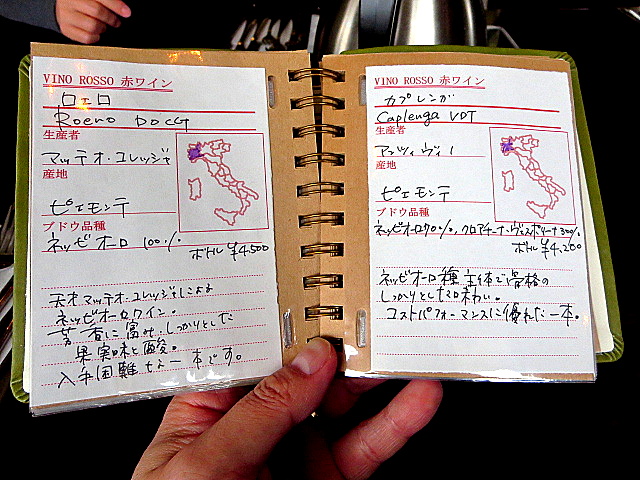 VINO ROSSO 赤ワイン
ロエロ
Roero DOCG
生産者
マッテオ・コレッジャ
産地
ピエモンテ
ブドウ品種
ネッビオーロ 100%
ボトル ¥4,500
天才マッテオ・コレッジャによる
ネッビオーロワイン。
芳香に富み、しっかりとした
果実味と酸。
入手困難な一本です。
VINO ROSSO 赤ワイン
カプレンガ
Caplenga VDT
生産者
アンツィヴィーノ
産地
ピエモンテ
ブドウ品種
ネッビオーロ70%, クロアチーナ・ヴェスポリーナ30%
ボトル ¥4,200
ネッビオーロ種主体で骨格の
しっかりとした味わい。
コストパフォーマンスに優れた一本。